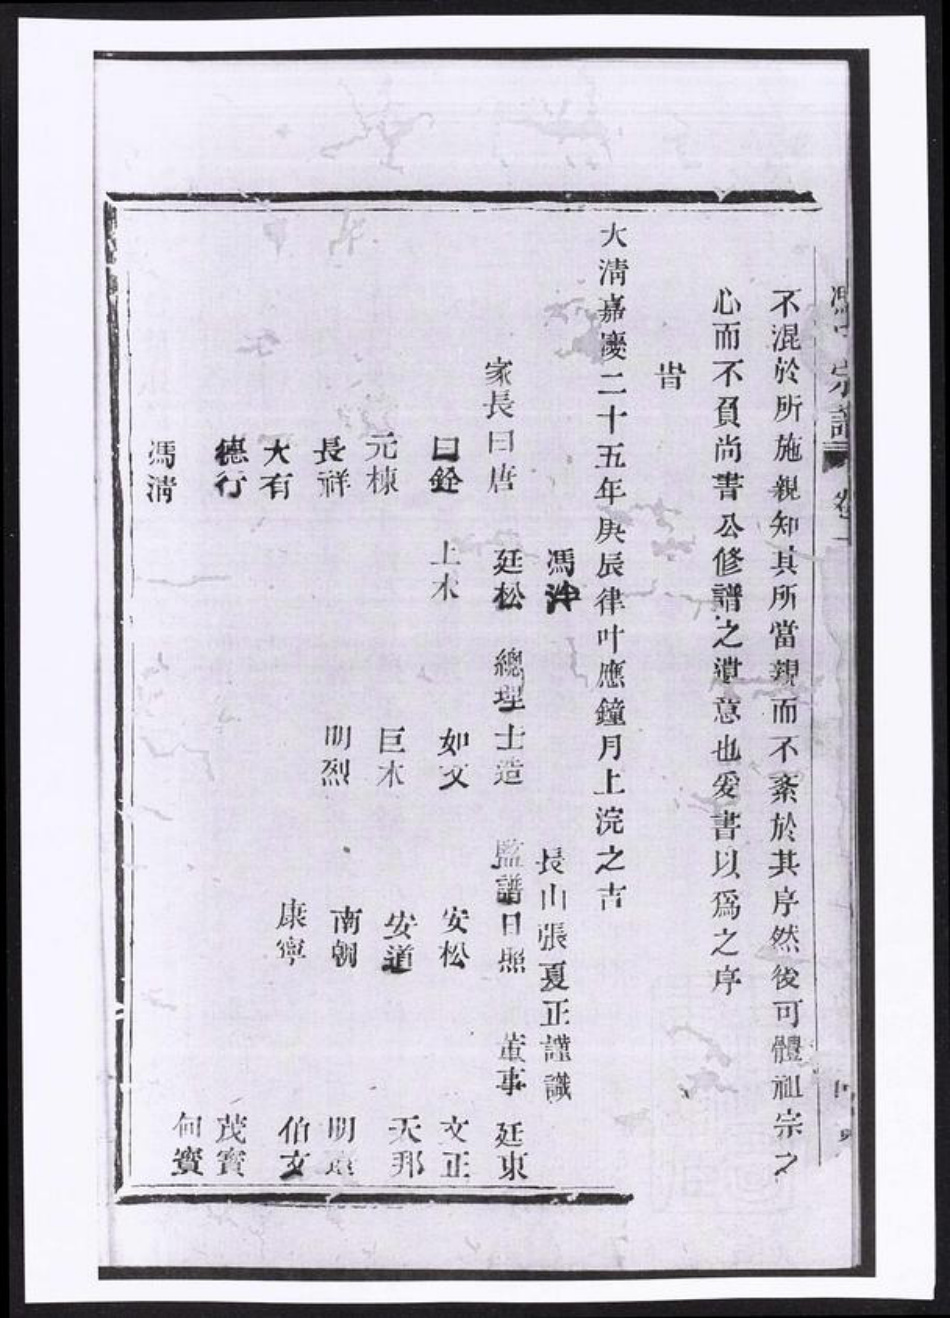 不混於所施親知其所當親而不紊於其序然後可體祖宗之
心而不負尚書公修譜之遺意也爰書以為之序
旹
大淸嘉慶二十五年庚辰律叶應鐘月上浣之吉
馮沖 長山張夏正謹識
家長曰唐 廷松 總理士造 監譜日照 董事 廷東
曰銓 上木 如文 安松 文正
元棟 巨木 安道 天邦
長祥 明烈 南朝 明
大有 康寧 伯玄
德行 茂賓
馮淸 賓
宗譜 卷